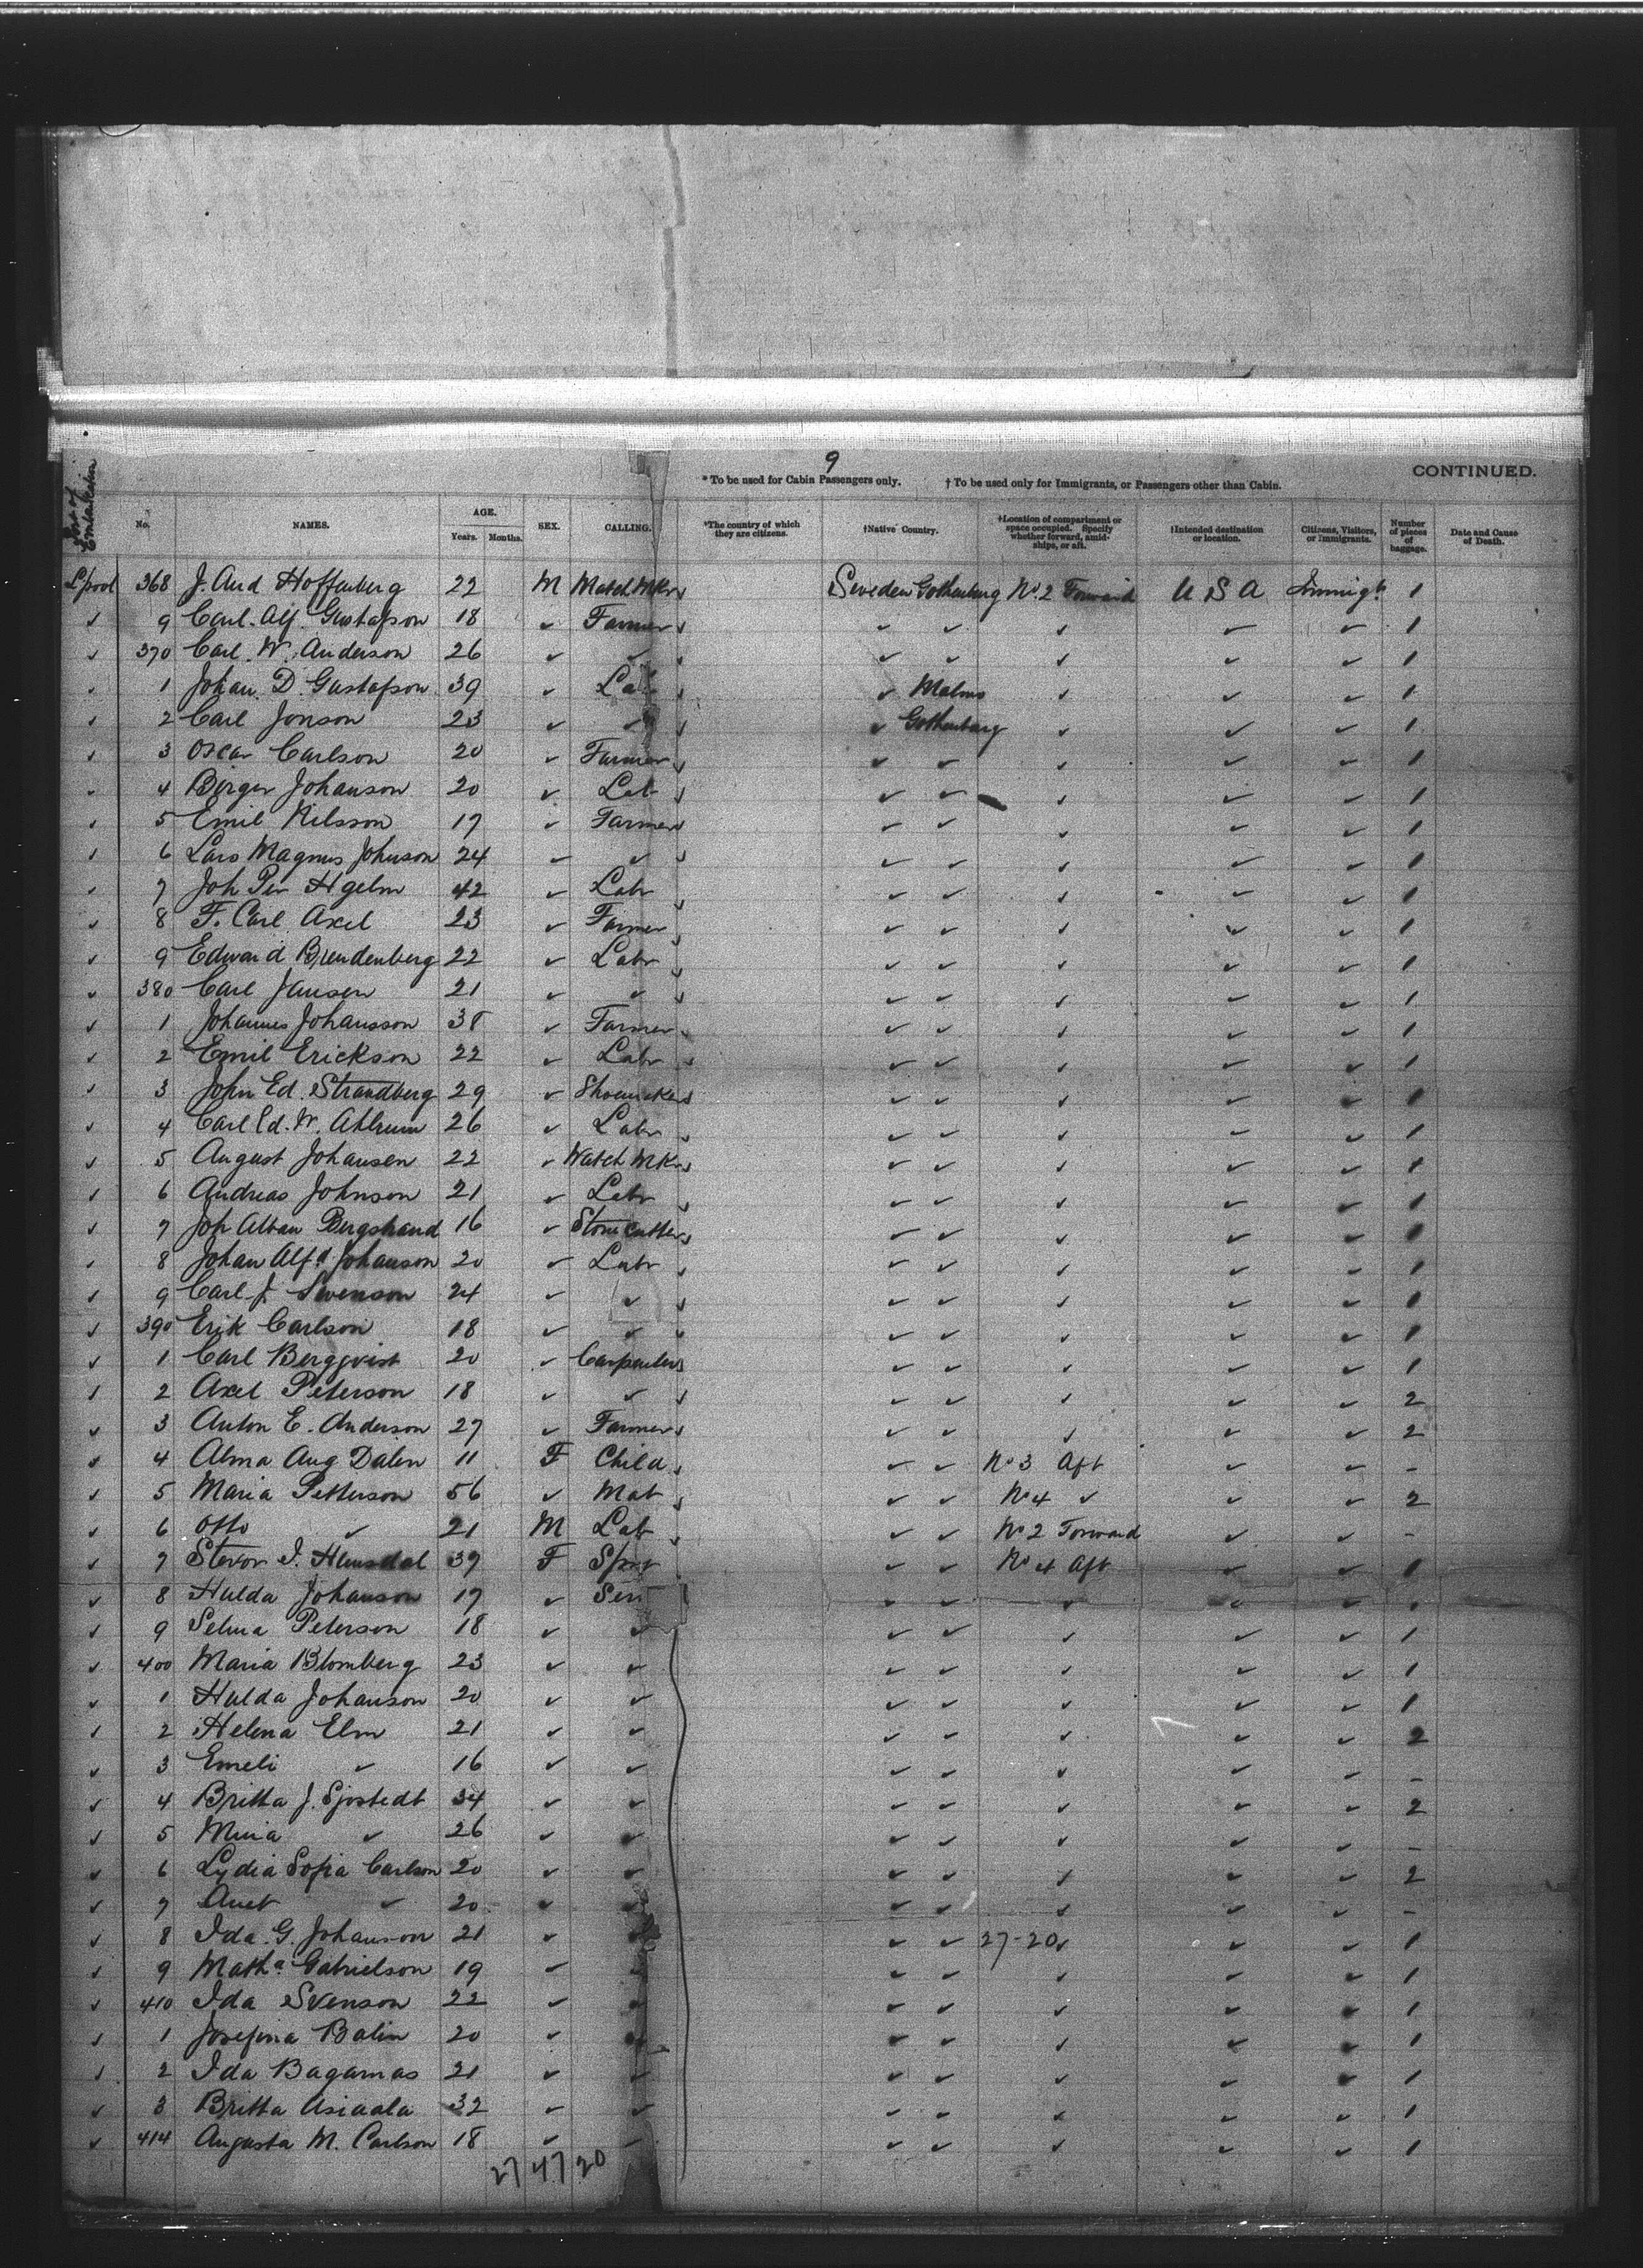 9
CONTINUED.
*To be used for Cabin Passengers only. † To be used only for Immigrants, or Passengers other than Cabin.
Port of Embarkation No. NAMES. AGE. Years. Months. SEX. CALLING. *The country of which they are citizens. †Native Country. †Location of compartment or space occupied. Specify whether forward, amidships, or aft. †Intended destination or location. Citizens, Visitors, or Immigrants. Number of pieces of baggage. Date and Cause of Death.
L'pool 368 J. And Hoffenberg 22 M Match Mkr Sweden Gothenburg No. 2 Forward U S A Immigt. 1
✓ 9 Carl. Alf. Gustafson 18 ✓ Farmer ✓ ✓ ✓ ✓ ✓ 1
✓ 370 Carl. W. Anderson 26 ✓ ✓ ✓ ✓ ✓ ✓ ✓ 1
✓ 1 Johan. D. Gustafson 39 ✓ Lab ✓ Malmo ✓ ✓ ✓ 1
✓ 2 Carl Jonson 23 ✓ ✓ ✓ Gothenburg ✓ ✓ ✓ 1
✓ 3 Oscar Carlson 20 ✓ Farmer ✓ ✓ ✓ ✓ ✓ 1
✓ 4 Berger Johanson 20 ✓ Lab ✓ ✓ ✓ ✓ ✓ 1
✓ 5 Emil Nilsson 17 ✓ Farmer ✓ ✓ ✓ ✓ ✓ 1
✓ 6 Lars Magnus Johnson 24 ✓ ✓ ✓ ✓ ✓ ✓ ✓ 1
✓ 7 Joh Per Hgelm 42 ✓ Labr ✓ ✓ ✓ ✓ ✓ 1
✓ 8 F. Carl Axel 23 ✓ Farmer ✓ ✓ ✓ ✓ ✓ 1
✓ 9 Edward Brendenberg 22 ✓ Labr ✓ ✓ ✓ ✓ ✓ 1
✓ 380 Carl Jansen 21 ✓ ✓ ✓ ✓ ✓ ✓ ✓ 1
✓ 1 Johannes Johansson 38 ✓ Farmer ✓ ✓ ✓ ✓ ✓ 1
✓ 2 Emil Erickson 22 ✓ Labr ✓ ✓ ✓ ✓ ✓ 1
✓ 3 John Ed. Strandberg 29 ✓ Shoemaker ✓ ✓ ✓ ✓ ✓ 1
✓ 4 Carl Ed. W. Ahlrum 26 ✓ Labr ✓ ✓ ✓ ✓ ✓ 1
✓ 5 August Johansen 22 ✓ Watch Mkr ✓ ✓ ✓ ✓ ✓ 1
✓ 6 Andreas Johnson 21 ✓ Labr ✓ ✓ ✓ ✓ ✓ 1
✓ 7 Joh Alban Bergstrand 16 ✓ Stone Cutter ✓ ✓ ✓ ✓ ✓ 1
✓ 8 Johan Alfd. Johanson 20 ✓ Labr ✓ ✓ ✓ ✓ ✓ 1
✓ 9 Carl J. Swenson 24 ✓ ✓ ✓ ✓ ✓ ✓ ✓ 1
✓ 390 Erik Carlson 18 ✓ ✓ ✓ ✓ ✓ ✓ ✓ 1
✓ 1 Carl Bergqvist 20 ✓ Carpenter ✓ ✓ ✓ ✓ ✓ 1
✓ 2 Axel Peterson 18 ✓ ✓ ✓ ✓ ✓ ✓ ✓ 2
✓ 3 Anton E. Anderson 27 ✓ Farmer ✓ ✓ ✓ ✓ ✓ 2
✓ 4 Alma Aug Dalen 11 F Child ✓ ✓ No 3 Aft ✓ ✓ -
✓ 5 Maria Petterson 56 ✓ Mat ✓ ✓ No 4 ✓ ✓ ✓ 2
✓ 6 Otto ✓ 21 M Lab ✓ ✓ No 2 Forward ✓ ✓ -
✓ 7 I. 39 F ✓ ✓ No 4 Aft ✓ ✓ 1
✓ 8 Hulda Johanson 17 ✓ Ser ✓ ✓ ✓ ✓ ✓ 1
✓ 9 Selma Peterson 18 ✓ ✓ ✓ ✓ ✓ ✓ ✓ 1
✓ 400 Maria Blomberg 23 ✓ ✓ ✓ ✓ ✓ ✓ ✓ 1
✓ 1 Hulda Johanson 20 ✓ ✓ ✓ ✓ ✓ ✓ ✓ 1
✓ 2 Helena Elm 21 ✓ ✓ ✓ ✓ ✓ ✓ ✓ 2
✓ 3 Emeli ✓ 16 ✓ ✓ ✓ ✓ ✓ ✓ ✓ -
✓ 4 Britta J. Sjostedt 34 ✓ ✓ ✓ ✓ ✓ ✓ ✓ 2
✓ 5 Mina ✓ 26 ✓ ✓ ✓ ✓ ✓ ✓ ✓ -
✓ 6 Lydia Sofia Carlson 20 ✓ ✓ ✓ ✓ ✓ ✓ ✓ 2
✓ 7 ✓ 20 ✓ ✓ ✓ ✓ ✓ ✓ ✓ -
✓ 8 Ida. G. Johanson 21 ✓ ✓ ✓ ✓ 27-20 ✓ ✓ ✓ 1
✓ 9 Matha. Gabrielson 19 ✓ ✓ ✓ ✓ ✓ ✓ ✓ 1
✓ 410 Ida Svenson 22 ✓ ✓ ✓ ✓ ✓ ✓ ✓ 1
✓ 1 Josefina Balin 20 ✓ ✓ ✓ ✓ ✓ ✓ ✓ 1
✓ 2 Ida Bagarnas 21 ✓ ✓ ✓ ✓ ✓ ✓ ✓ 1
✓ 3 Britta Asiaala 32 ✓ ✓ ✓ ✓ ✓ ✓ ✓ 1
✓ 414 Augusta M. Carlson 18 ✓ ✓ ✓ ✓ ✓ ✓ ✓ 1
27 47 20